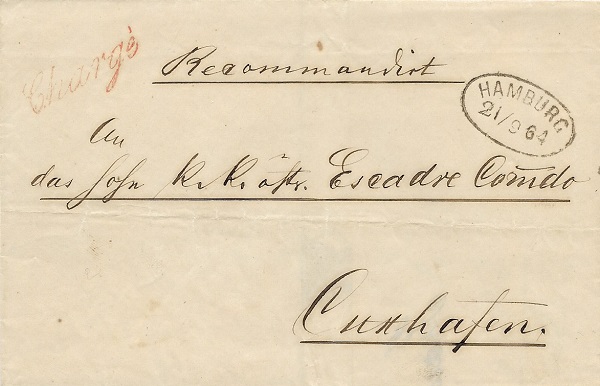 Chargé
Recommandirt
HAMBURG
21/9 64
An
das hohe K. K. östr. Escadre Com̄do
Cuxhafen.